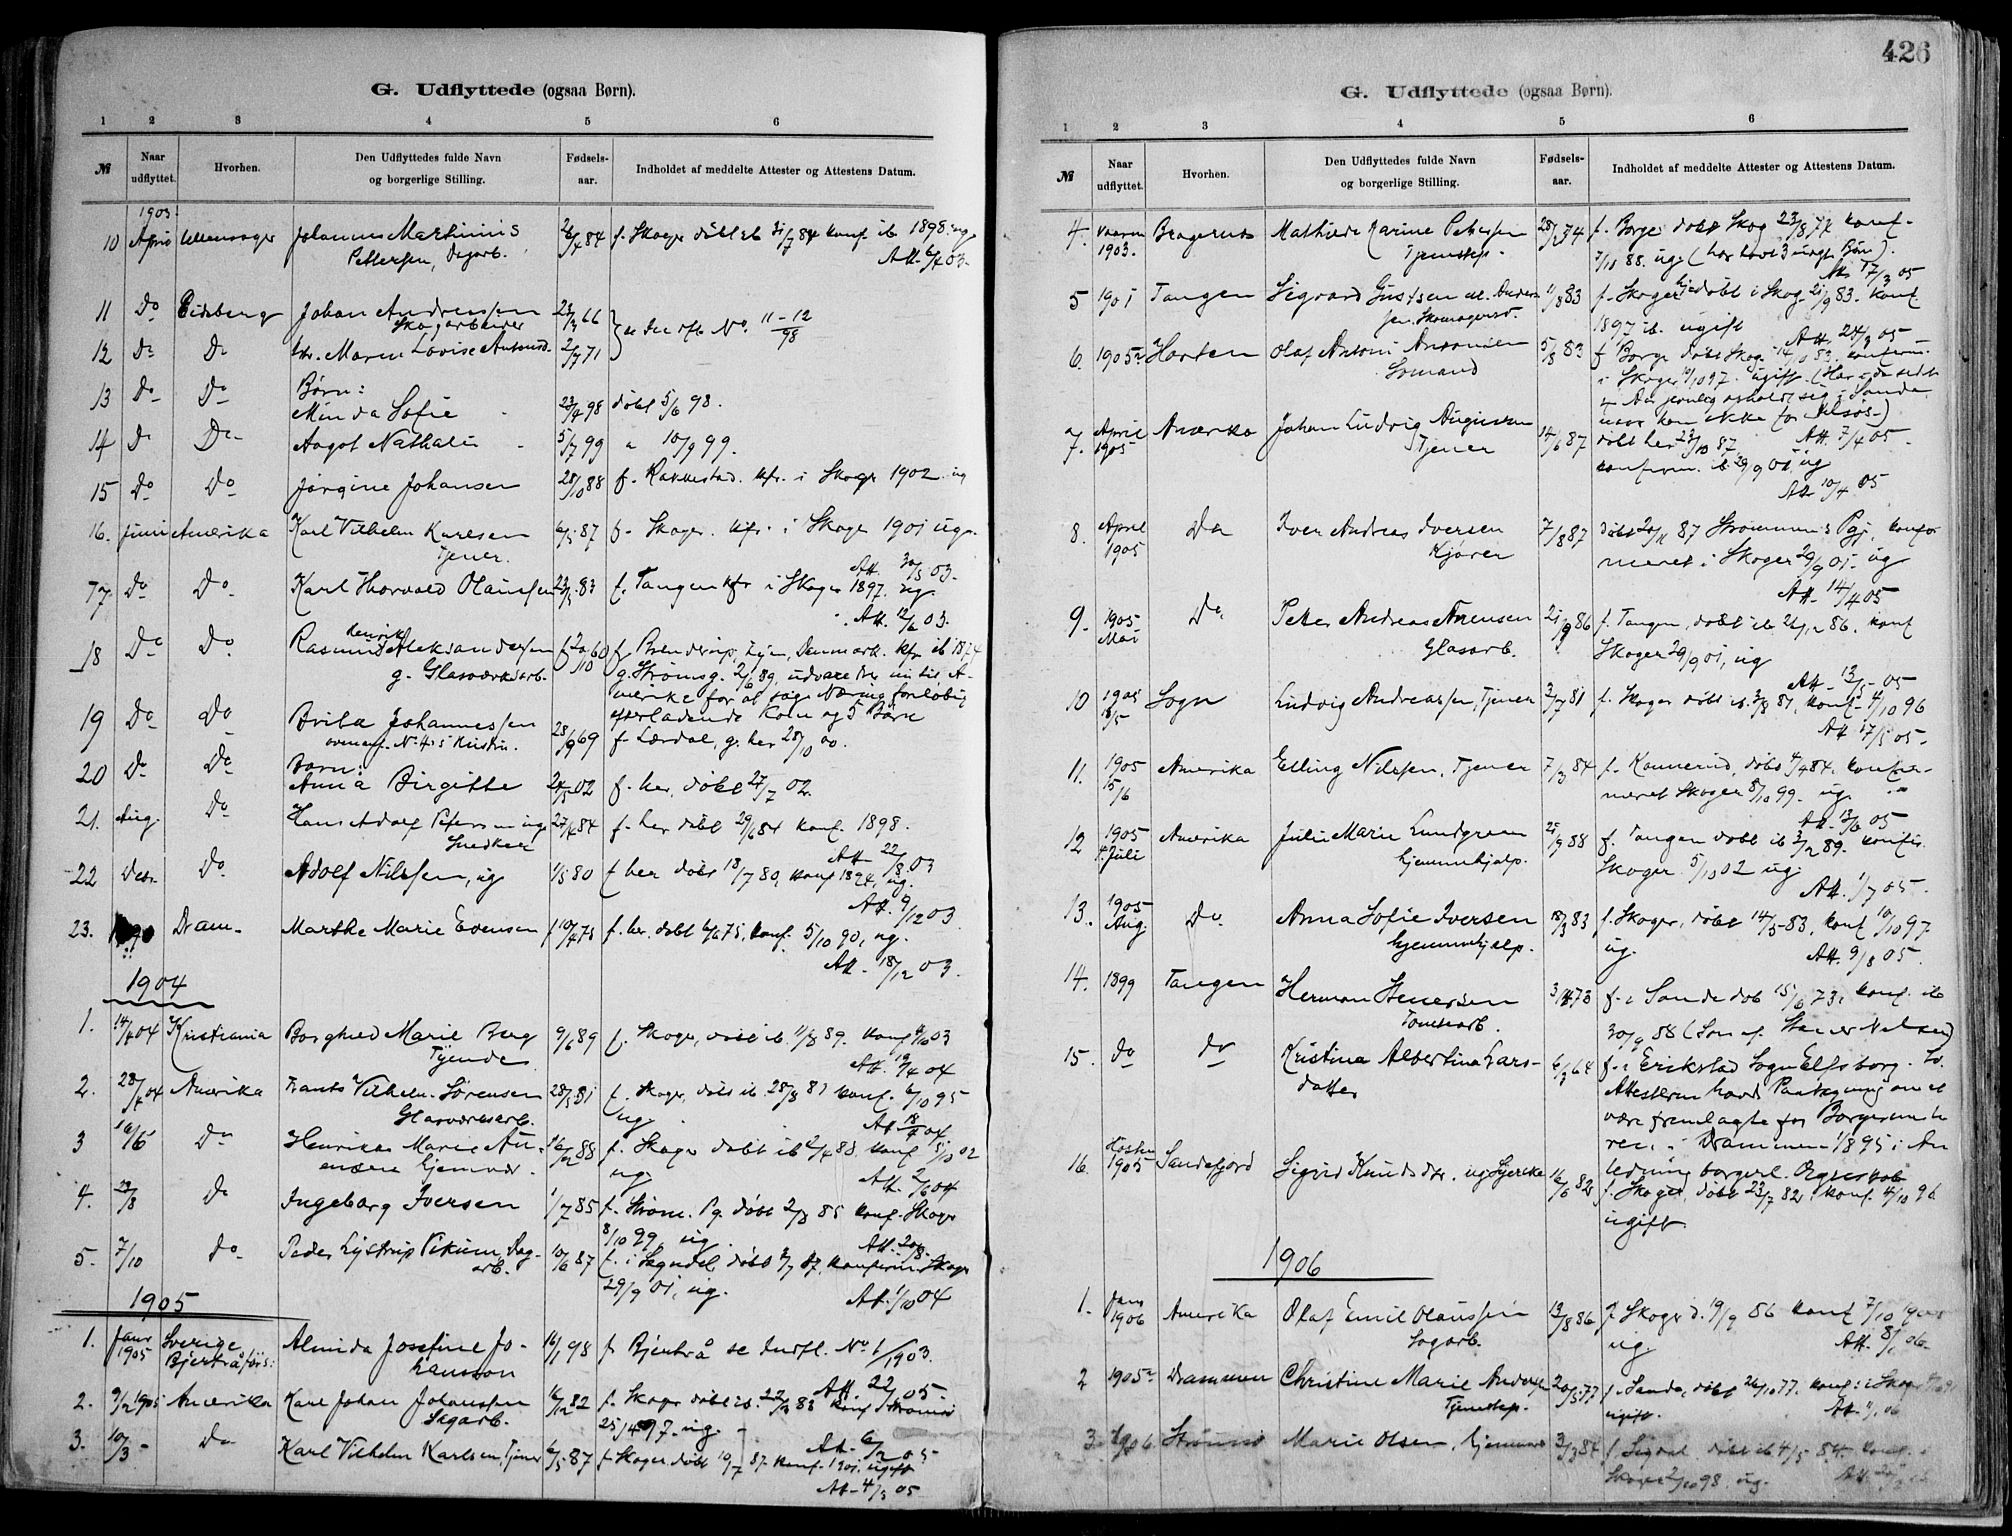 G. Udflyttede (ogsaa Børn).
1 2 3 4 5 6
№ Naar udflyttet. Hvorhen. Den Udflyttedes fulde Navn og borgerlige Stilling. Fødsels-aar. Indholdet af meddelte Attester og Attestens Datum.
1903.
10 April Ullensager Johannes Martinius 26/4 84 f. Skoger døbt ib 31/7 84 konf. ib 1898. ug
Pettersen, Dagarb. Att. 6/4 03.
11 Do Eidsberg Johan Andreassen 23/3 66
Skogarbeider
11-12/98
12 Do Do Maren Lovise 2/7 71
13 Do Do Børn:
Minda Sofie 23/4 98 døbt 5/6 98.
14 Do Do Aagot Nathalie 5/7 99 " 10/9 99.
15 Do Do Jørgine Johansen 28/10 88 f. Rakkestad. kfr. i Skoger 1902. ug
16. Juni Amerika Karl Vilhelm Karlsen 6/5 87 f. Skoger. kfr. i Skoger 1901 ug.
Tjener. Att. 30/5 03.
17 Do Do Karl Thorvald Olaussen 23/5 83 f. Tangen kfr i Skoger 1897. ug.
Att. 12/6 03.
18 Do Do Rasmus Henrik Aleksandersen f 20/10 60 f. Brenderup, Fyen, Danmark. kfr ib 1874
g. Glasværksarb. g. Strømsg. 2/6 89,
for at søge Næring
efterladende Kone og 5 Børn
19 Do Do Brita Johannessen 28/9 69 f. Lærdal, g. her 28/10 00.
20 Do Do Barn:
Anna Birgitte 24/5 02 f. her, døbt 27/7 02.
21. Aug. Do Hans Adolf Petersen ug 27/4 84 f. her døbt 29/6 84 konf. 1898.
Snedker Att. 22/8 03
22 Des. Do Adolf Nilssen, ug 1/5 80 f her døbt 18/7 80, konf 1894, ug.
Att. 9/12 03.
23. Dram. Marthe Marie Evensen f. her. døbt 6/6 75, konf. 5/10 90, ug.
Att. 18/12 03.
1904
1. 14/4 04 Kristiania Borghild Marie Berg 9/6 89 f. Skoger, døbt ib. 11/8 89. konf 4/10 03
Tjende Att. 19/4 04
2. 28/4 04 Amerika Frants Vilhelm Sørensen 28/5 81 f. Skoger, døbt ib. 28/8 81 konf. 6/10 95
Glasværksarb. ug. Att. 18/4 04.
3 16/6 Do Henrikka Marie An- 16/2 88 f. Skoger døbt ib 2/4 88 konf 5/10 02
ensen hjemmev. ug Att. 2/6 04
4. 23/8 Do Ingeborg Iversen 1/7 85 f. Strøm. Pg. døbt 2/8 85 konf. Skoger
8/10 99, ug. Att. 20/8.
5. 7/10 Do Peder Lystrup Dag- 10/6 87 f. i Døbt konfirm. Skoger
arb. 29/9 01, ug. Att. 1/10 04
1905
1. Janr 1905 Sverige, Bjertrå Almida Josefine Jo- 16/1 98 f. Bjertrå se Indfl. No 1/1903.
hansson Att. 22/1 05.
2. 9/2 1905 Amerika Karl Johan Johanssen 16/12 82 f. Skoger døbt ib. 22/4 83 konf. Strømsø
Sagarb. 25/4 97. ug. Att. 6/2 05
3. 10/3 Do Karl Vilhelm Karlsen, Tjener 6/5 87 f. Skoger. døbt 10/7 87. konf. 1901. ugift
Att. 4/3 05
426
G. Udflyttede (ogsaa Børn).
1 2 3 4 5 6
№ Naar udflyttet. Hvorhen. Den Udflyttedes fulde Navn og borgerlige Stilling. Fødsels-aar. Indholdet af meddelte Attester og Attestens Datum.
4. Vaaren 1903. Bragernes Mathilde Karine Petersen f. Borge døbt Skog. konf.
Tjenestep. 7/10 88. ug. (har havt 3 uægte Børn).
Att. 17/3 05
5 1901 Tangen Sigvard 11/8 83 f. Skoger Hjemdøbt i Skog. 21/9 83. konf.
1897 ib. ugift Att. 24/3 05
6. 1905 Horten Olaf Anton Antonsen 5/8 83 f. Borge døbt Skog. 14/10 83. konfirm.
Sømand i Skoger 10/10 97. ugift. (Har de sidste
Aar opholdt sig i Sande,
7. April 1905 Amerika Johan Ludvig Augustson 14/6 87 døbt her 23/10 87 Att. 7/4 05.
Tjener konfirm. ib. 29/9 01 ug
Att. 10/4 05
8. April 1905 Do Iver Andreas Iversen 7/8 87 døbt 20/11 87 Strømmens Pgj. konfir-
Kjører meret i Skoger 29/9 01. ug
Att. 14/4 05
9. 1905 Mai Do Peter Andreas 21/9 86 f. Tangen, døbt ib konf
Glasarb. Skoger 29/9 01, ug
Att. 13/5 05
10 1905 18/5 Sogn Ludvig Andreassen, Tjener 3/7 81 f. Skoger døbt ib. konf. 4/10 96
Att 17/5 05.
11. 1905 15/6 Amerika Elling Nilssen, Tjener 7/3 84 f. Konnerud, døbt 4/4 84. konfir-
meret Skoger 8/10 99. ug.
Att. 13/6 05
12 1905 1. Juli Amerika Julie Marie Lundgreen 21/9 88 f. Tangen døbt ib 3/2 89. konfir.
hjemmehjælp. Skoger 5/10 02 ug.
Att. 1/7 05.
13. 1905 Aug. Do Anna Sofie Iversen 18/3 83 f. Skoger, døbt 14/5 83, konf 10/10 97
hjemmehjælp. ug. Att. 9/8 05.
14. 1899 Tangen Herman Stenersen f. i Sande døb 15/6 73, konf. ib
Tomtearb. 30/9 88 (Søn af Stener Nelsen)
15. Do Do Kristina Albertina Lars- 6/3 64 f. i Erikstad Sogn Elfsborg.
datter Attesten havde Paategning om at
være fremlagte for Borgermeste
ren i Drammen 1/8 95 i An
ledning borgerl. Ægteskab
16. Høsten 1905 Sandefjord Sigrid Knudsdtr, ug 16/6 82 f. Skoger, døbt 23/7 82, konf. 4/10 96
ugift
1906
1. Jan 1906 Amerika Olaf Emil Olaussen 13/8 86 f. Skoger d. 19/9 86 konf 7/10 1900
Sagarb. ug. Att. 8/1 06
2 1905 Drammen Christine Marie Andersen 20/5 77 f. Sande, døbt 26/10 77. konf. i Skoger
Tjenestep. ugift. Att. 06
3. Strømsø Marie Olsen, hjemmev. 3/3 84 f. Sigdal. døbt ib 4/5 84. konf. i
Skoger 2/10 98 ug. Att.